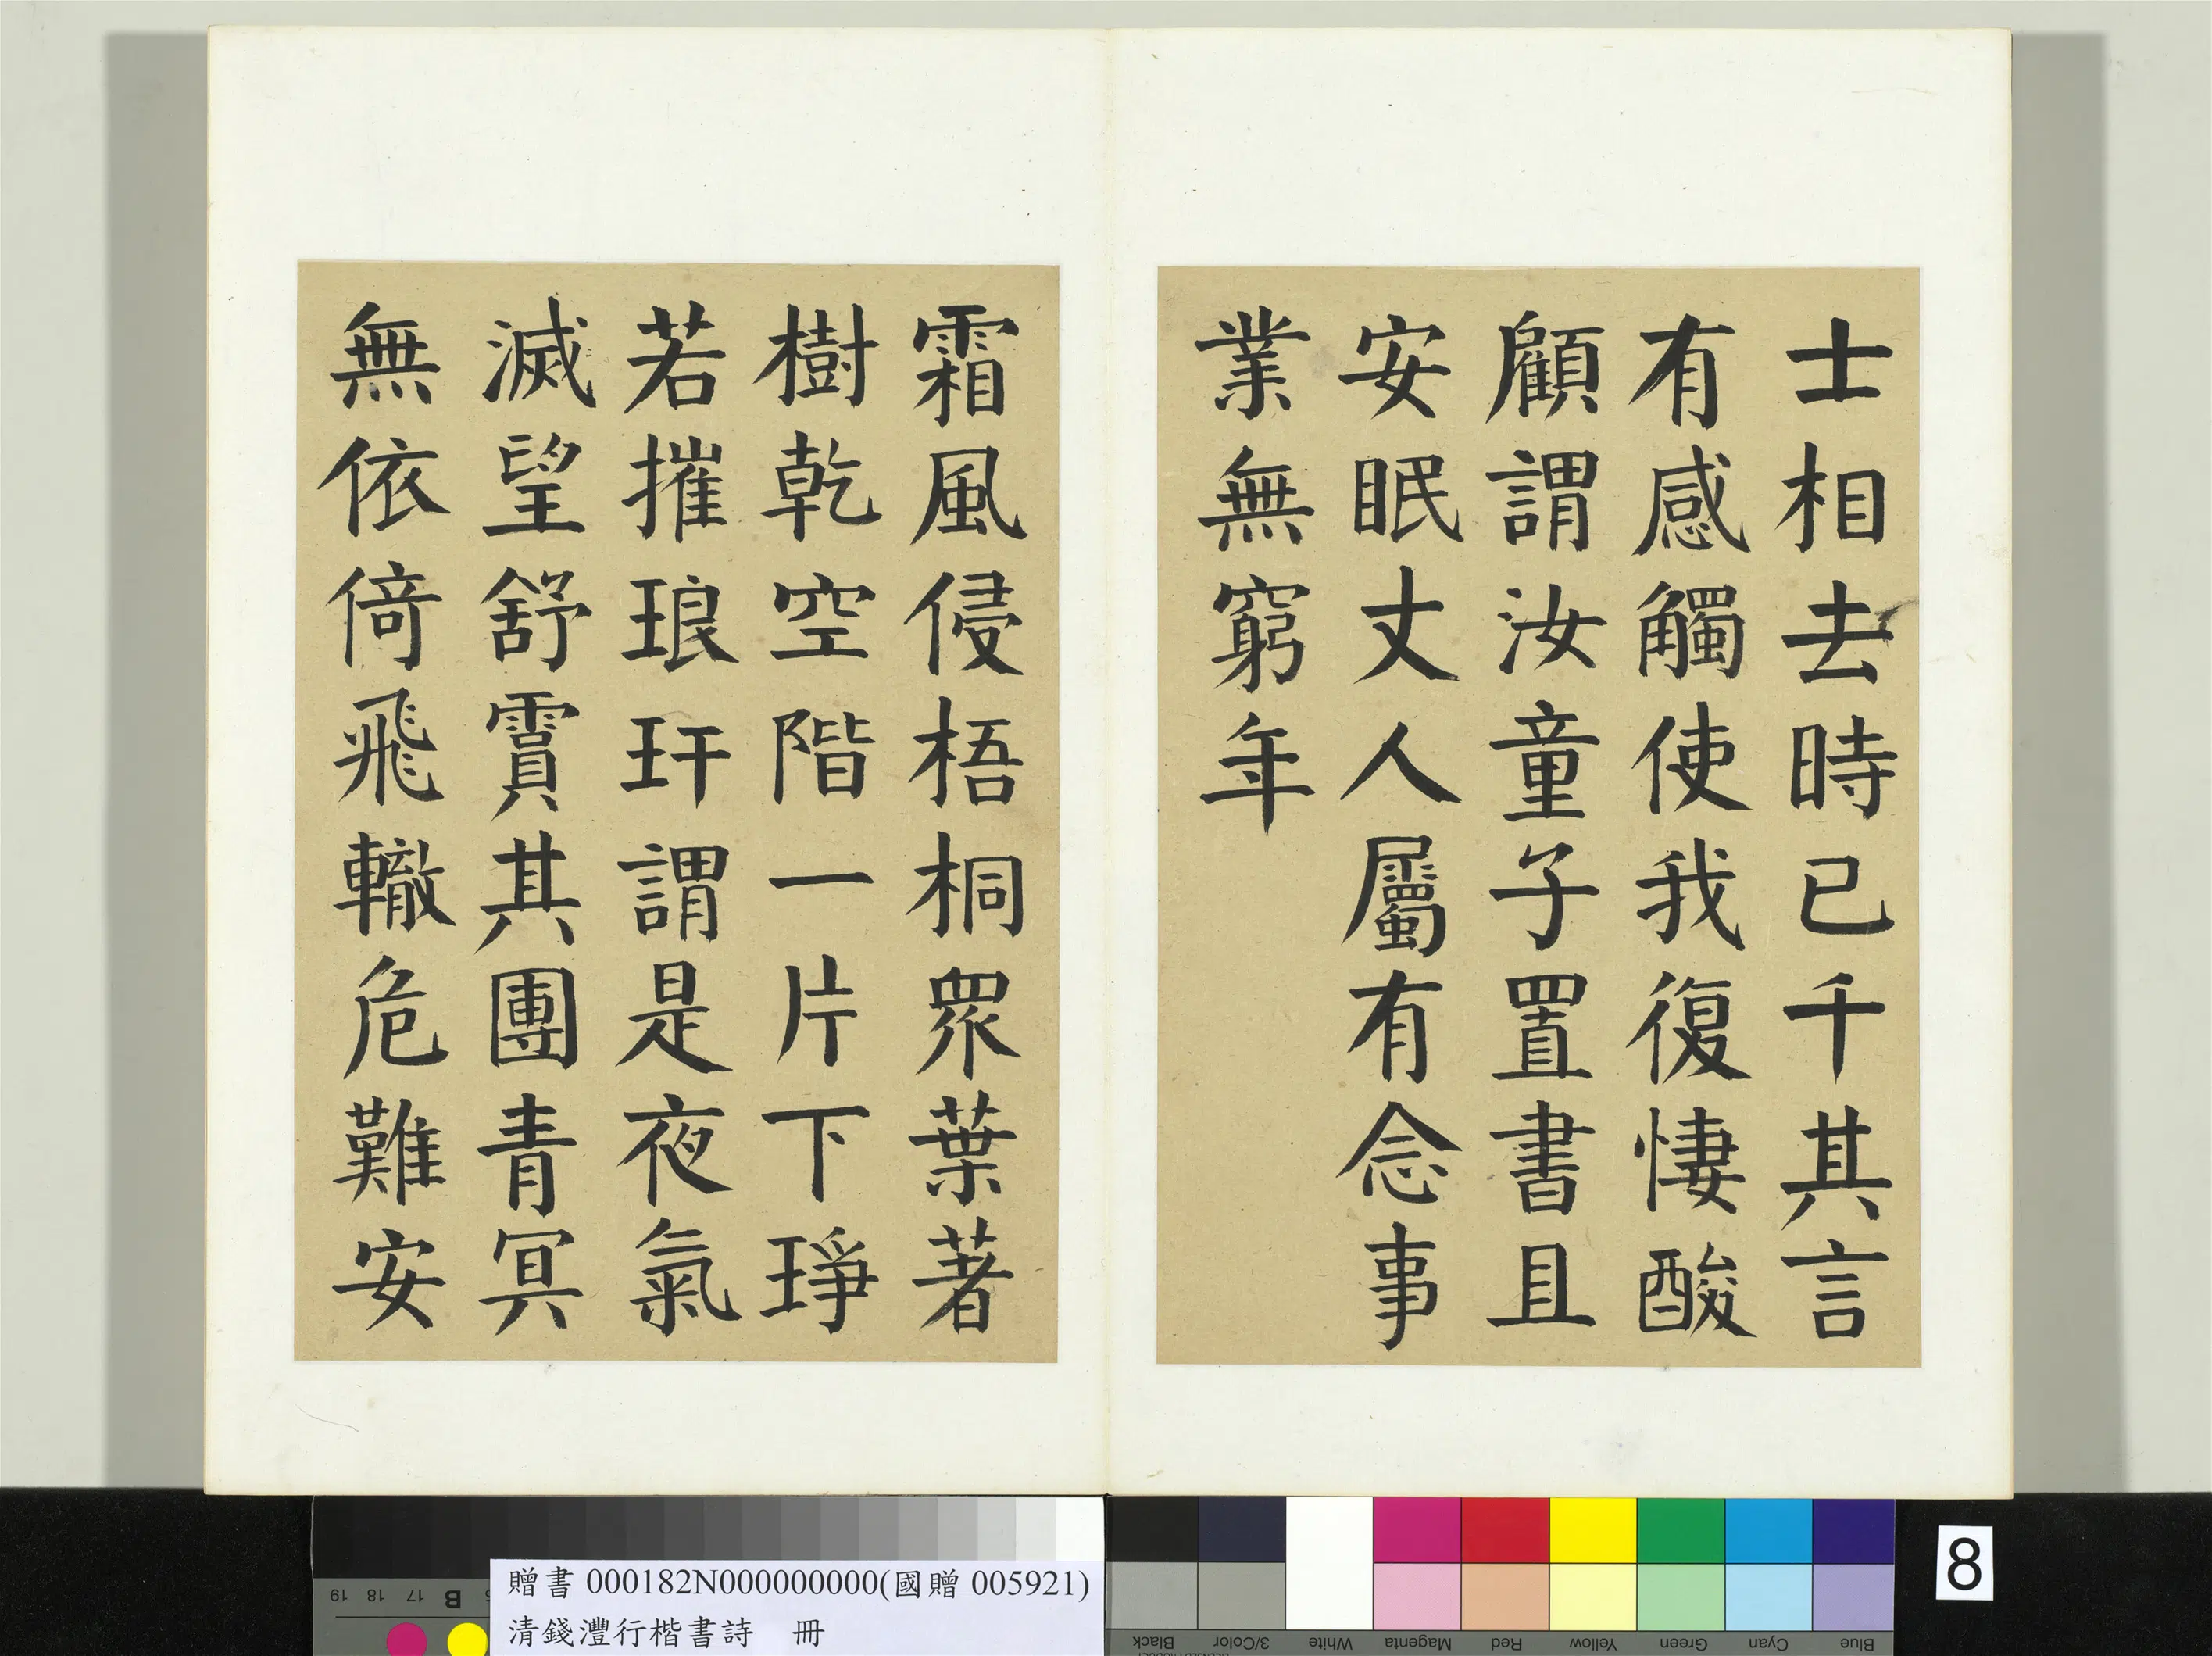 士相去時已千其言
有感觸使我復悽酸
顧謂汝童子置書且
安眠丈人屬有念事
業無窮年
霜風侵梧桐眾葉著
樹乾空階一片下琤
若摧琅玕謂是夜氣
滅望舒霣其團青冥
無依倚飛轍危難安
贈書 000182N000000000(國贈 005921)
清錢灃行楷書詩 冊
8
19 18 17 B
Black 3/Color White Magenta Red Yellow Green Cyan Blue